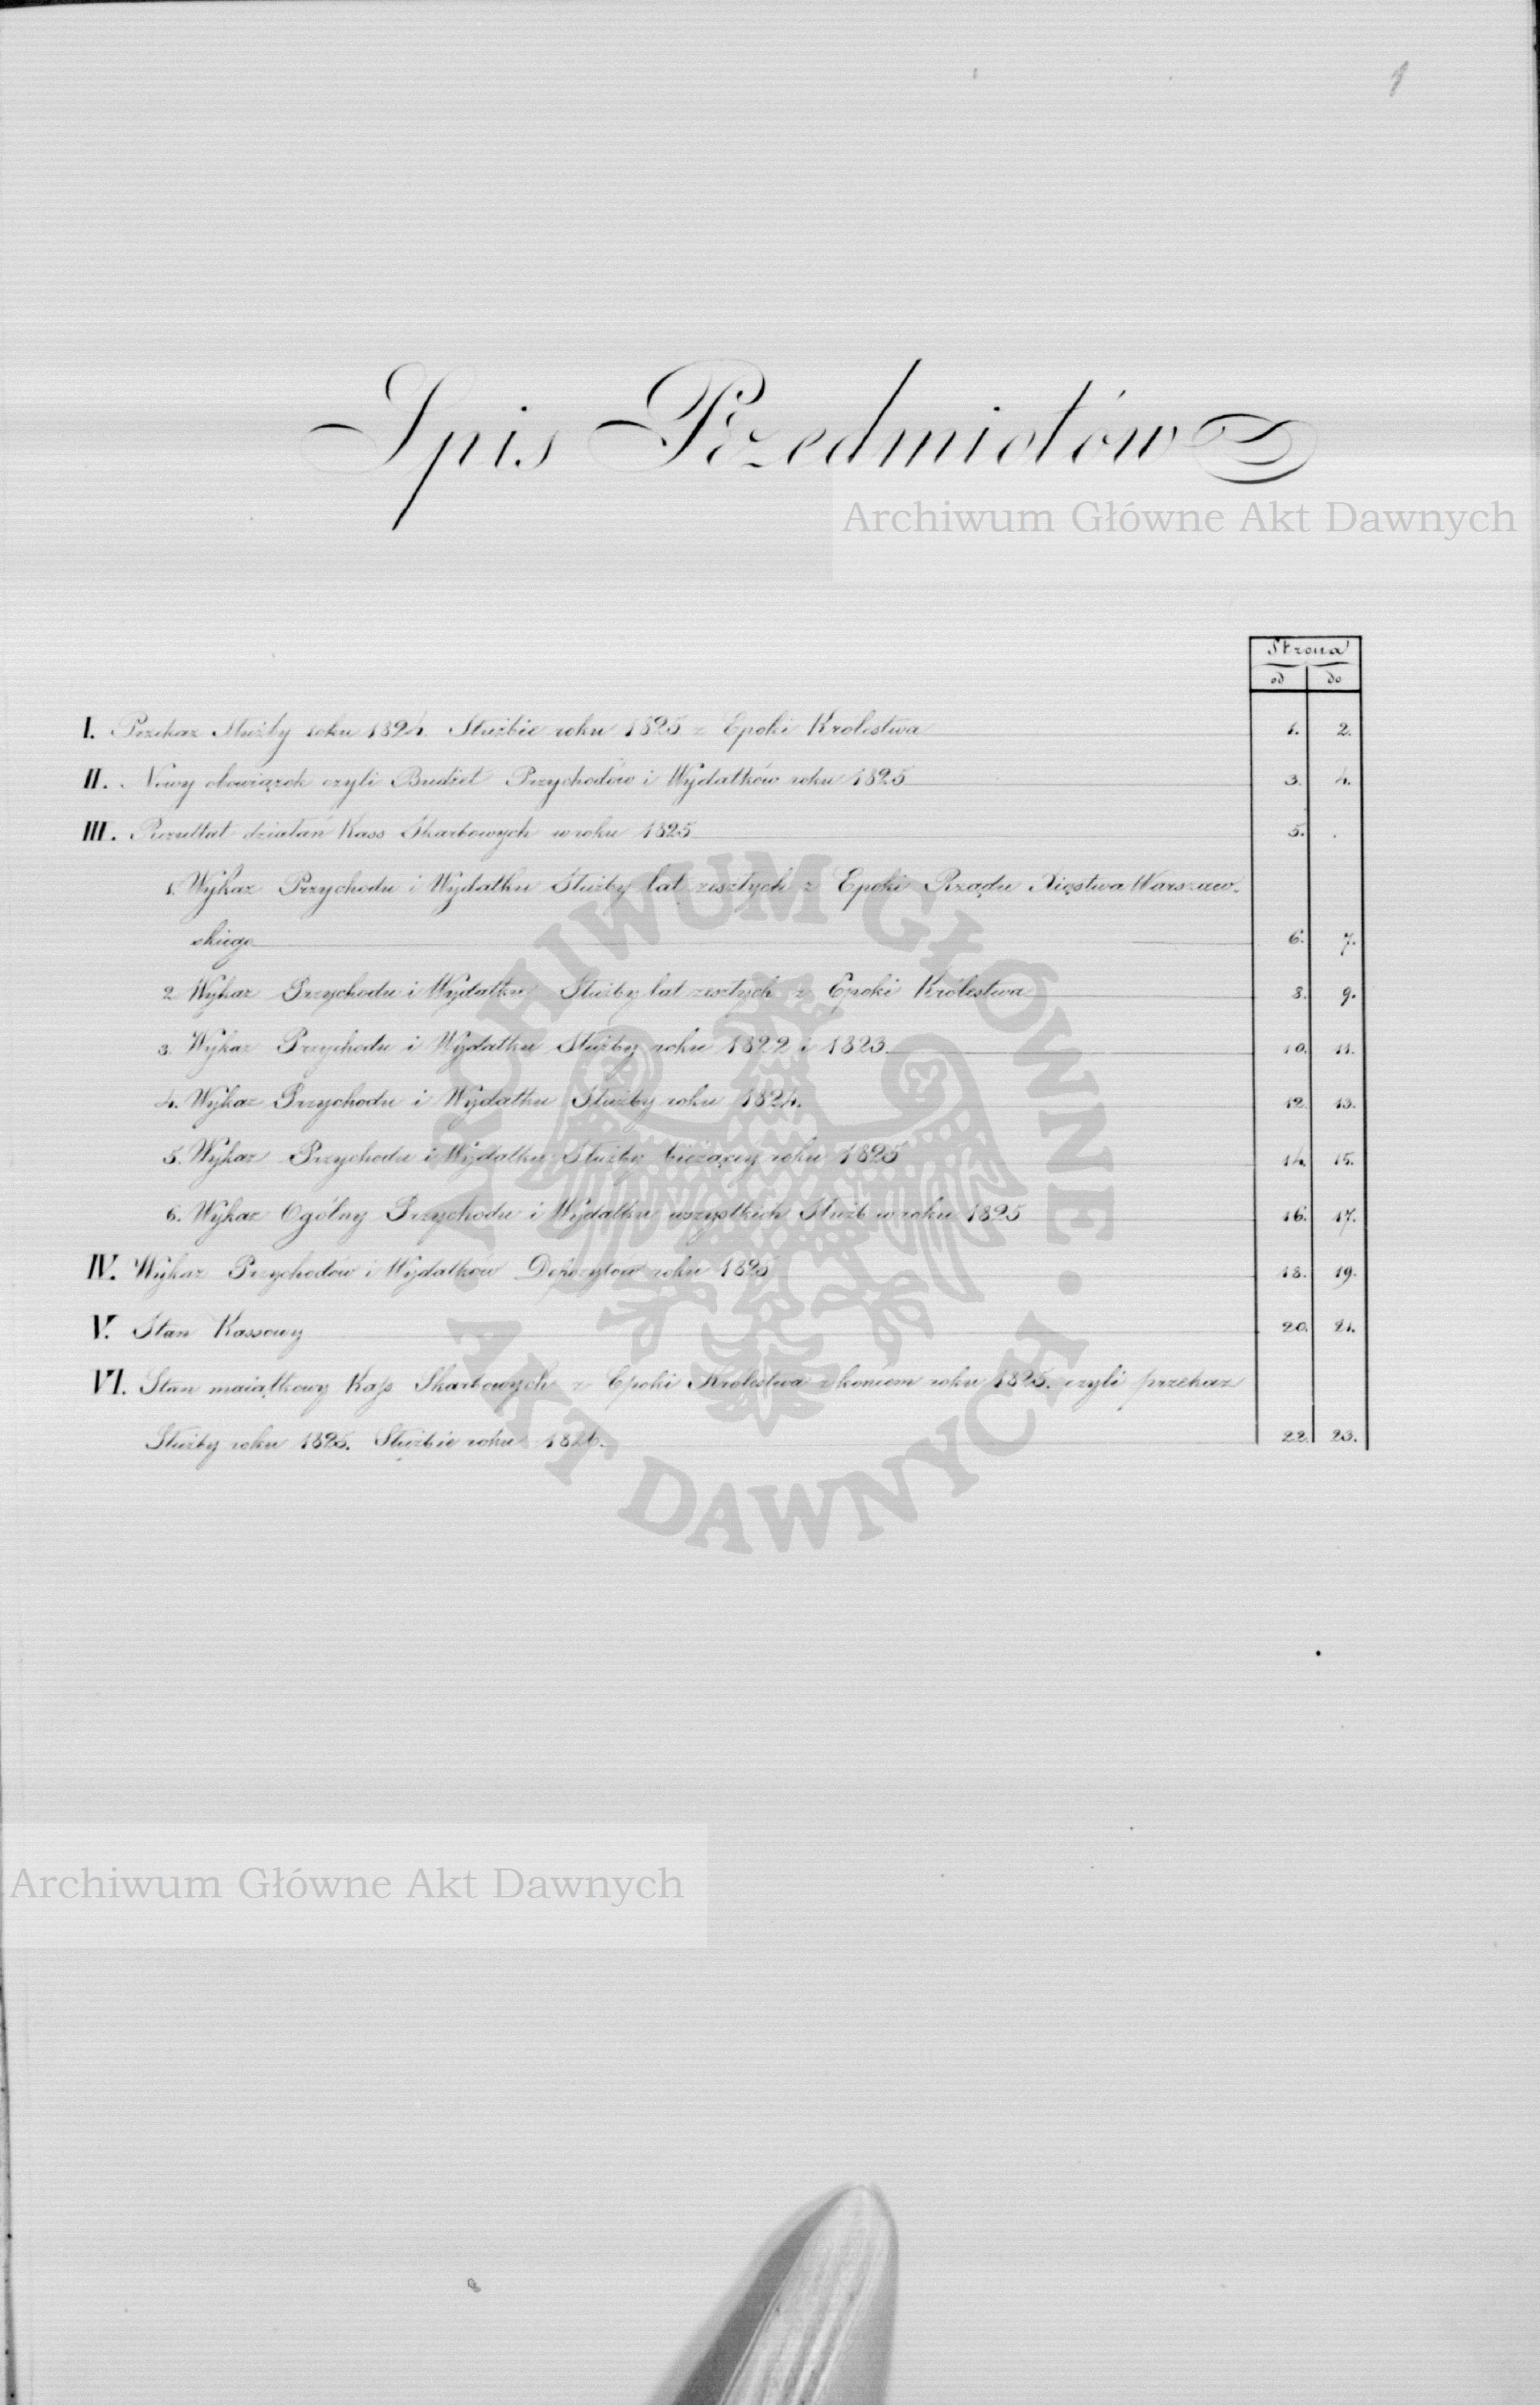 1
Spis Przedmiotów
Archiwum Główne Akt Dawnych
Strona
od do
I. Przekaz Służby roku 1824. Służbie roku 1825 z Epoki Krolestwa 1. 2.
II. Nowy obowiązek czyli Budżet Przychodów i Wydatków roku 1825 3. 4.
III. Rezultat działań Kass Skarbowych w roku 1825 5. .
1. Wykaz Przychodu i Wydatku Służby lat zeszłych z Epoki Rządu Xięstwa Warszaw-
skiego 6. 7.
2 Wykaz Przychodu i Wydatku Służby lat zeszłych z Epoki Królestwa 8. 9.
3. Wykaz Przychodu i Wydatku Służby roku 1822 i 1823. 10. 11.
4. Wykaz Przychodu i Wydatku Służby roku 1824. 12. 13.
5. Wykaz Przychodu i Wydatku Służby bieżącey roku 1825 14. 15.
6. Wykaz Ogólny Przychodu i Wydatku wszystkich Służb w roku 1825 16. 17.
IV. Wykaz Przychodów i Wydatków Depozytów roku 1825 18. 19.
V. Stan Kassowy 20. 21.
VI. Stan maiątkowy Kass Skarbowych z Epoki Królestwa z końcem roku 1825. czyli przekaz
Służby roku 1825. Służbie roku 1826. 22. 23.
ARCHIWUM GŁÓWNE
AKT DAWNYCH
Archiwum Główne Akt Dawnych